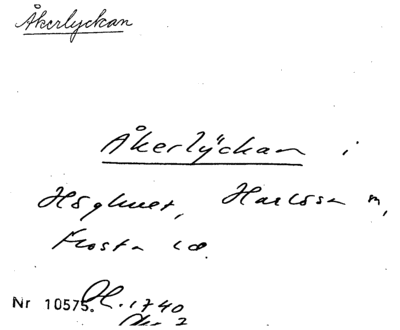 Åkerlyckan
Åkerlyckan i
Höghuset, Harlösa sn,
Frosta hd.
Nr 10575. Ol. 1740